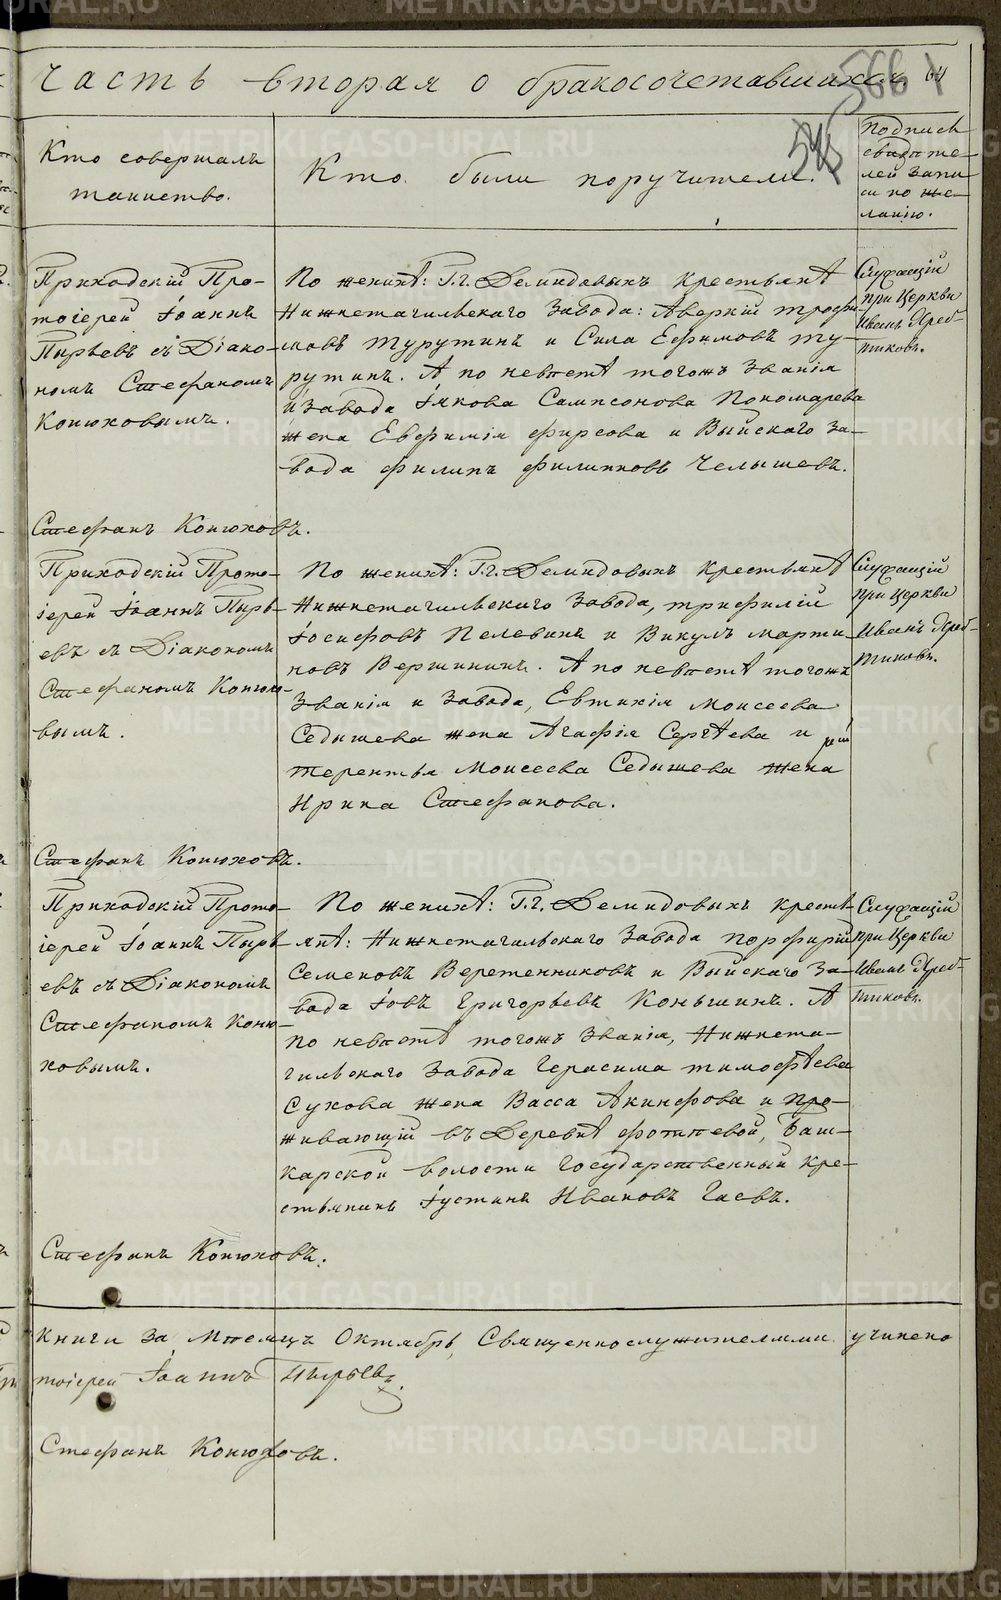 Часть вторая о бракосочетавшихся
64
566
Кто совершалъ
таинство.
Кто были поручители.
Подписи
свидѣте-
лей запи-
си по же-
ланію.
Приходскій Про-
тоіерей Іоаннъ
Пырьевъ съ Діако-
номъ Стефаномъ
Конюховымъ.
По женихѣ: Г.г. Демидовыхъ крестьянѣ
Нижнетагильскаго завода: Аверкій Трофи-
мовъ Турутинъ и Сила Ефимовъ Ту-
рутинъ. А по невѣстѣ тогожъ званія
и завода Іякова Сампсонова Пономарева
жена Евфимія Фирсова и Выйскаго за-
вода Филипъ Филиповъ Челышевъ.
Служащій
при Церкви
Иванъ Ухреб-
тиковъ.
Стефанъ Конюховъ.
Приходскій Прото-
іерей Іоаннъ Пырь-
евъ съ Діакономъ
Стефаномъ Коню-
вымъ.
По женихѣ: Г.г. Демидовыхъ крестьянѣ
Нижнетагильскаго завода, Трифилій
Іосифовъ Пелевинъ и Викулъ Марти-
новъ Вершининъ. А по невѣстѣ тогожъ
званія и завода, Евтихія Моисеева
Седышева жена Агафія Сергѣева и
Терентья Моисеева Седышева жена
Ирина Стефанова.
Служащій
при Церкви
Иванъ Ухреб-
тиковъ.
Стефанъ Конюховъ.
Приходскій Прото-
іерей Іоаннъ Пырь-
евъ съ Діакономъ
Стефаномъ Коню-
ховымъ.
По женихѣ: Г.г. Демидовыхъ кресть-
янѣ: Нижнетагильскаго завода Порфирій
Семеновъ Веретенниковъ и Выйскаго за-
вода Іовъ Григорьевъ Коньшинъ. А
по невѣстѣ тогожъ званія, Нижнета-
гильскаго завода Герасима Тимофѣева
Сухова жена Васса Акинфова и про-
живающій въ Деревнѣ Фотѣевой, Баш-
карской волости Государственный кре-
стьянинъ Іустинъ Ивановъ Гаевъ.
Служащій
при Церкви
Иванъ Ухреб-
тиковъ.
Стефанъ Конюховъ.
книги за Мѣсяцъ Октябрь, Священнослужителями учинено
тоіерей Іоаннъ Пырьевъ.
Стефанъ Конюховъ.
METRIKI.GASO-URAL.RU